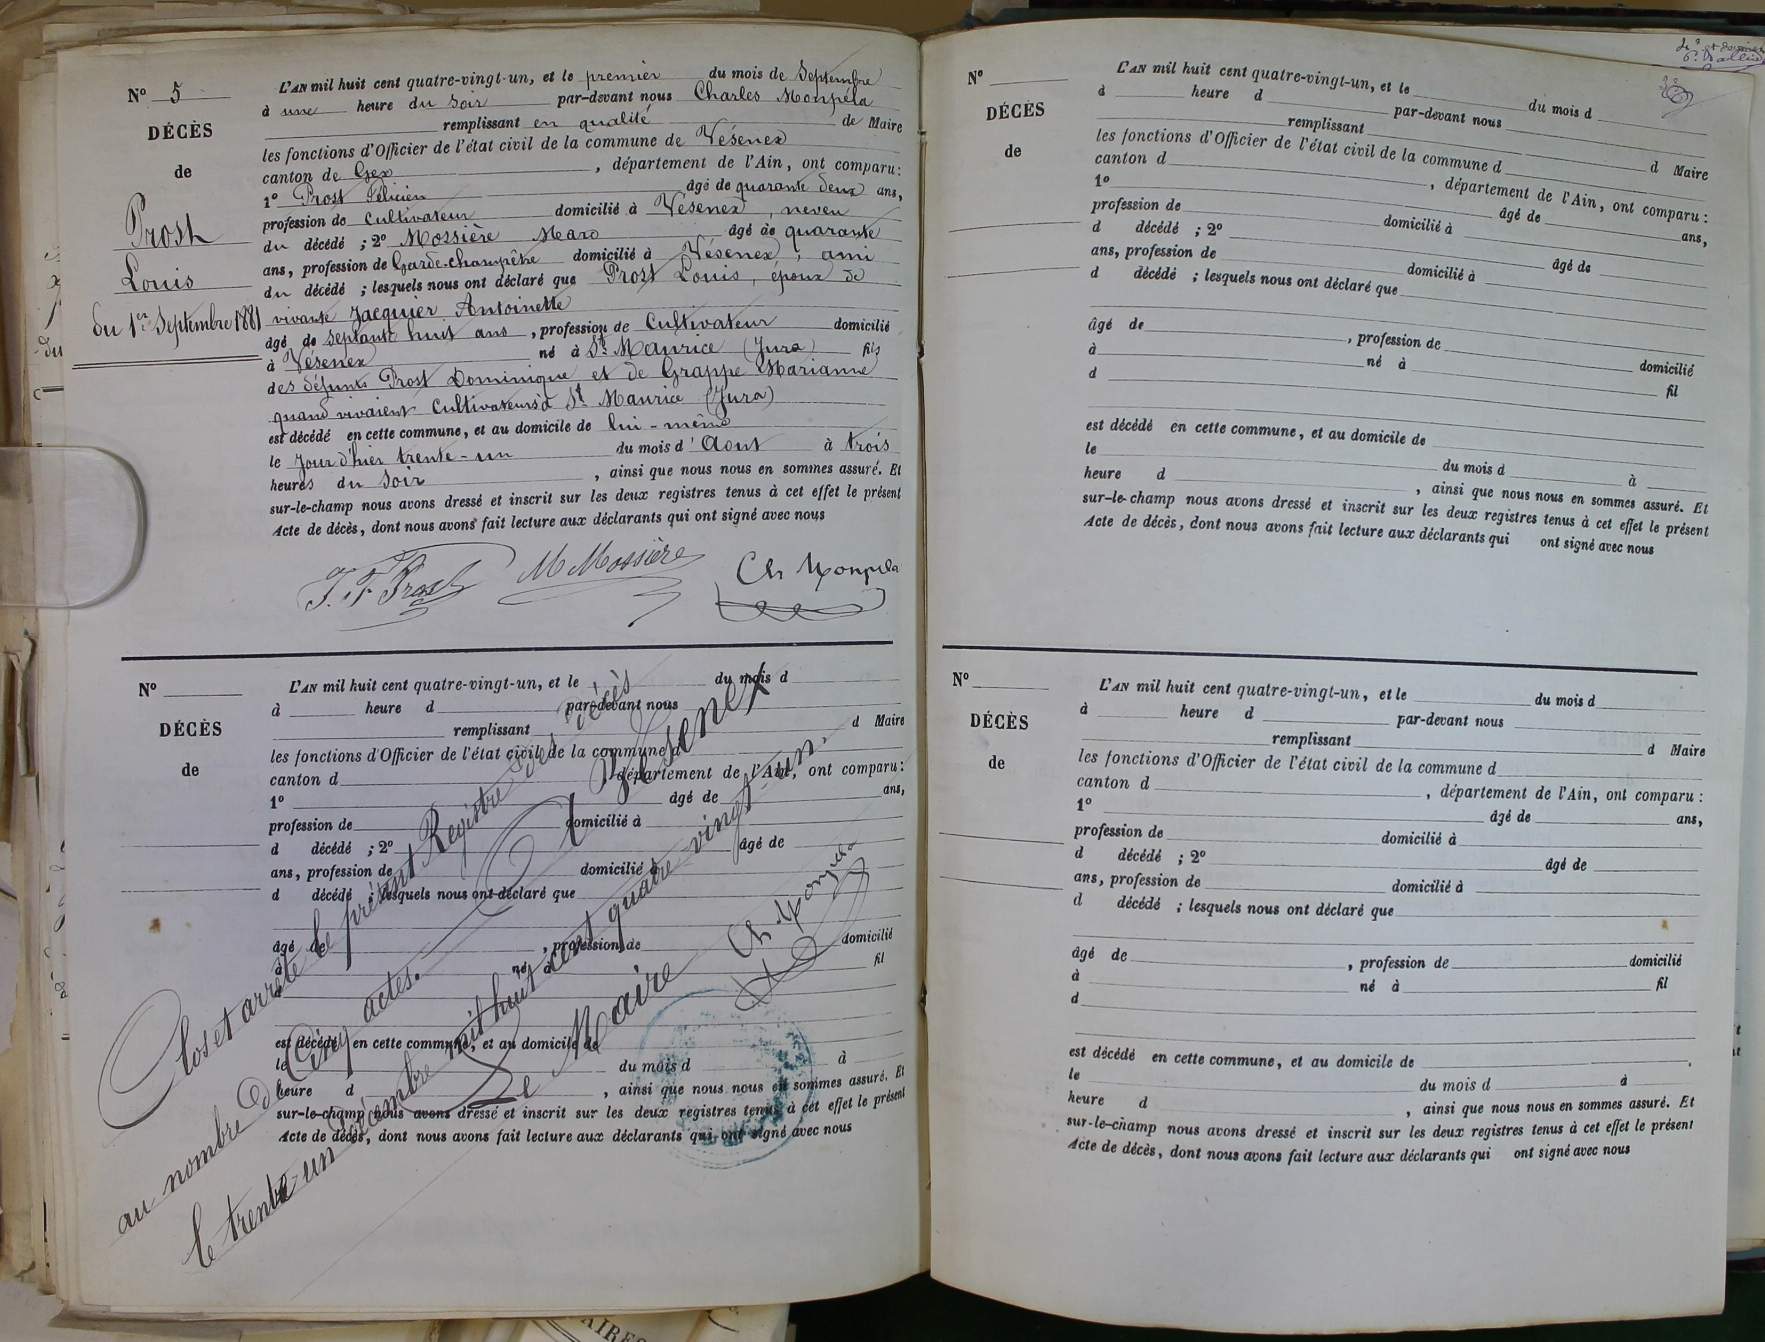 Nº 5
DÉCÈS
de
Prost
Louis
du 1er Septembre 1881
L'AN mil huit cent quatre-vingt-un, et le premier du mois de Septembre
à une heure du soir par-devant nous Charles Monpéla
remplissant en qualité de Maire
les fonctions d'Officier de l'état civil de la commune de Vésenex
canton de Gex, département de l'Ain, ont comparu:
1º Prost Félicien âgé de quarante deux ans,
profession de cultivateur domicilié à Vésenex, neveu
du décédé ; 2º Mossière Marc âgé de quarante
ans, profession de Garde-champêtre domicilié à Vésenex, ami
du décédé ; lesquels nous ont déclaré que Prost Louis, époux de
vivante Jacquier Antoinette
âgé de septante huit ans, profession de Cultivateur domicilié
à Vésenex né à St Maurice (Jura) fils
des défunts Prost Dominique et de Grappe Marianne
quand vivaient cultivateurs à St Maurice (Jura)
est décédé en cette commune, et au domicile de lui-même
le jour d'hier trente-un du mois d'Aout à trois
heures du soir, ainsi que nous nous en sommes assuré. Et
sur-le-champ nous avons dressé et inscrit sur les deux registres tenus à cet effet le présent
Acte de décès, dont nous avons fait lecture aux déclarants qui ont signé avec nous
J. F. Prost M Mossière Ch Monpela
Nº
DÉCÈS
de
L'AN mil huit cent quatre-vingt-un, et le du mois d
à heure d par-devant nous
remplissant d Maire
les fonctions d'Officier de l'état civil de la commune d
canton d département de l'Ain, ont comparu:
1º âgé de ans,
profession de domicilié à
d décédé ; 2º âgé de
ans, profession de domicilié à
d décédé ; lesquels nous ont déclaré que
âgé de , profession de domicilié
à né à fil
d
est décédé en cette commune, et au domicile de
le du mois d à
heure d , ainsi que nous nous en sommes assuré. Et
sur-le-champ nous avons dressé et inscrit sur les deux registres tenus à cet effet le présent
Acte de décès, dont nous avons fait lecture aux déclarants qui ont signé avec nous
Clos et arrêté le présent Registre des décès
au nombre de Cinq actes. A Vésenex
le trente-un Décembre mil huit cent quatre vingt-un.
Le Maire
Ch Monpela
Nº
DÉCÈS
de
L'AN mil huit cent quatre-vingt-un, et le du mois d
à heure d par-devant nous
remplissant d Maire
les fonctions d'Officier de l'état civil de la commune d
canton d , département de l'Ain, ont comparu:
1º âgé de ans,
profession de domicilié à
d décédé ; 2º âgé de
ans, profession de domicilié à
d décédé ; lesquels nous ont déclaré que
âgé de , profession de domicilié
à né à fil
d
est décédé en cette commune, et au domicile de
le du mois d à
heure d , ainsi que nous nous en sommes assuré. Et
sur-le-champ nous avons dressé et inscrit sur les deux registres tenus à cet effet le présent
Acte de décès, dont nous avons fait lecture aux déclarants qui ont signé avec nous
Nº
DÉCÈS
de
L'AN mil huit cent quatre-vingt-un, et le du mois d
à heure d par-devant nous
remplissant d Maire
les fonctions d'Officier de l'état civil de la commune d
canton d , département de l'Ain, ont comparu:
1º âgé de ans,
profession de domicilié à
d décédé ; 2º âgé de
ans, profession de domicilié à
d décédé ; lesquels nous ont déclaré que
âgé de , profession de domicilié
à né à fil
d
est décédé en cette commune, et au domicile de
le du mois d à
heure d , ainsi que nous nous en sommes assuré. Et
sur-le-champ nous avons dressé et inscrit sur les deux registres tenus à cet effet le présent
Acte de décès, dont nous avons fait lecture aux déclarants qui ont signé avec nous